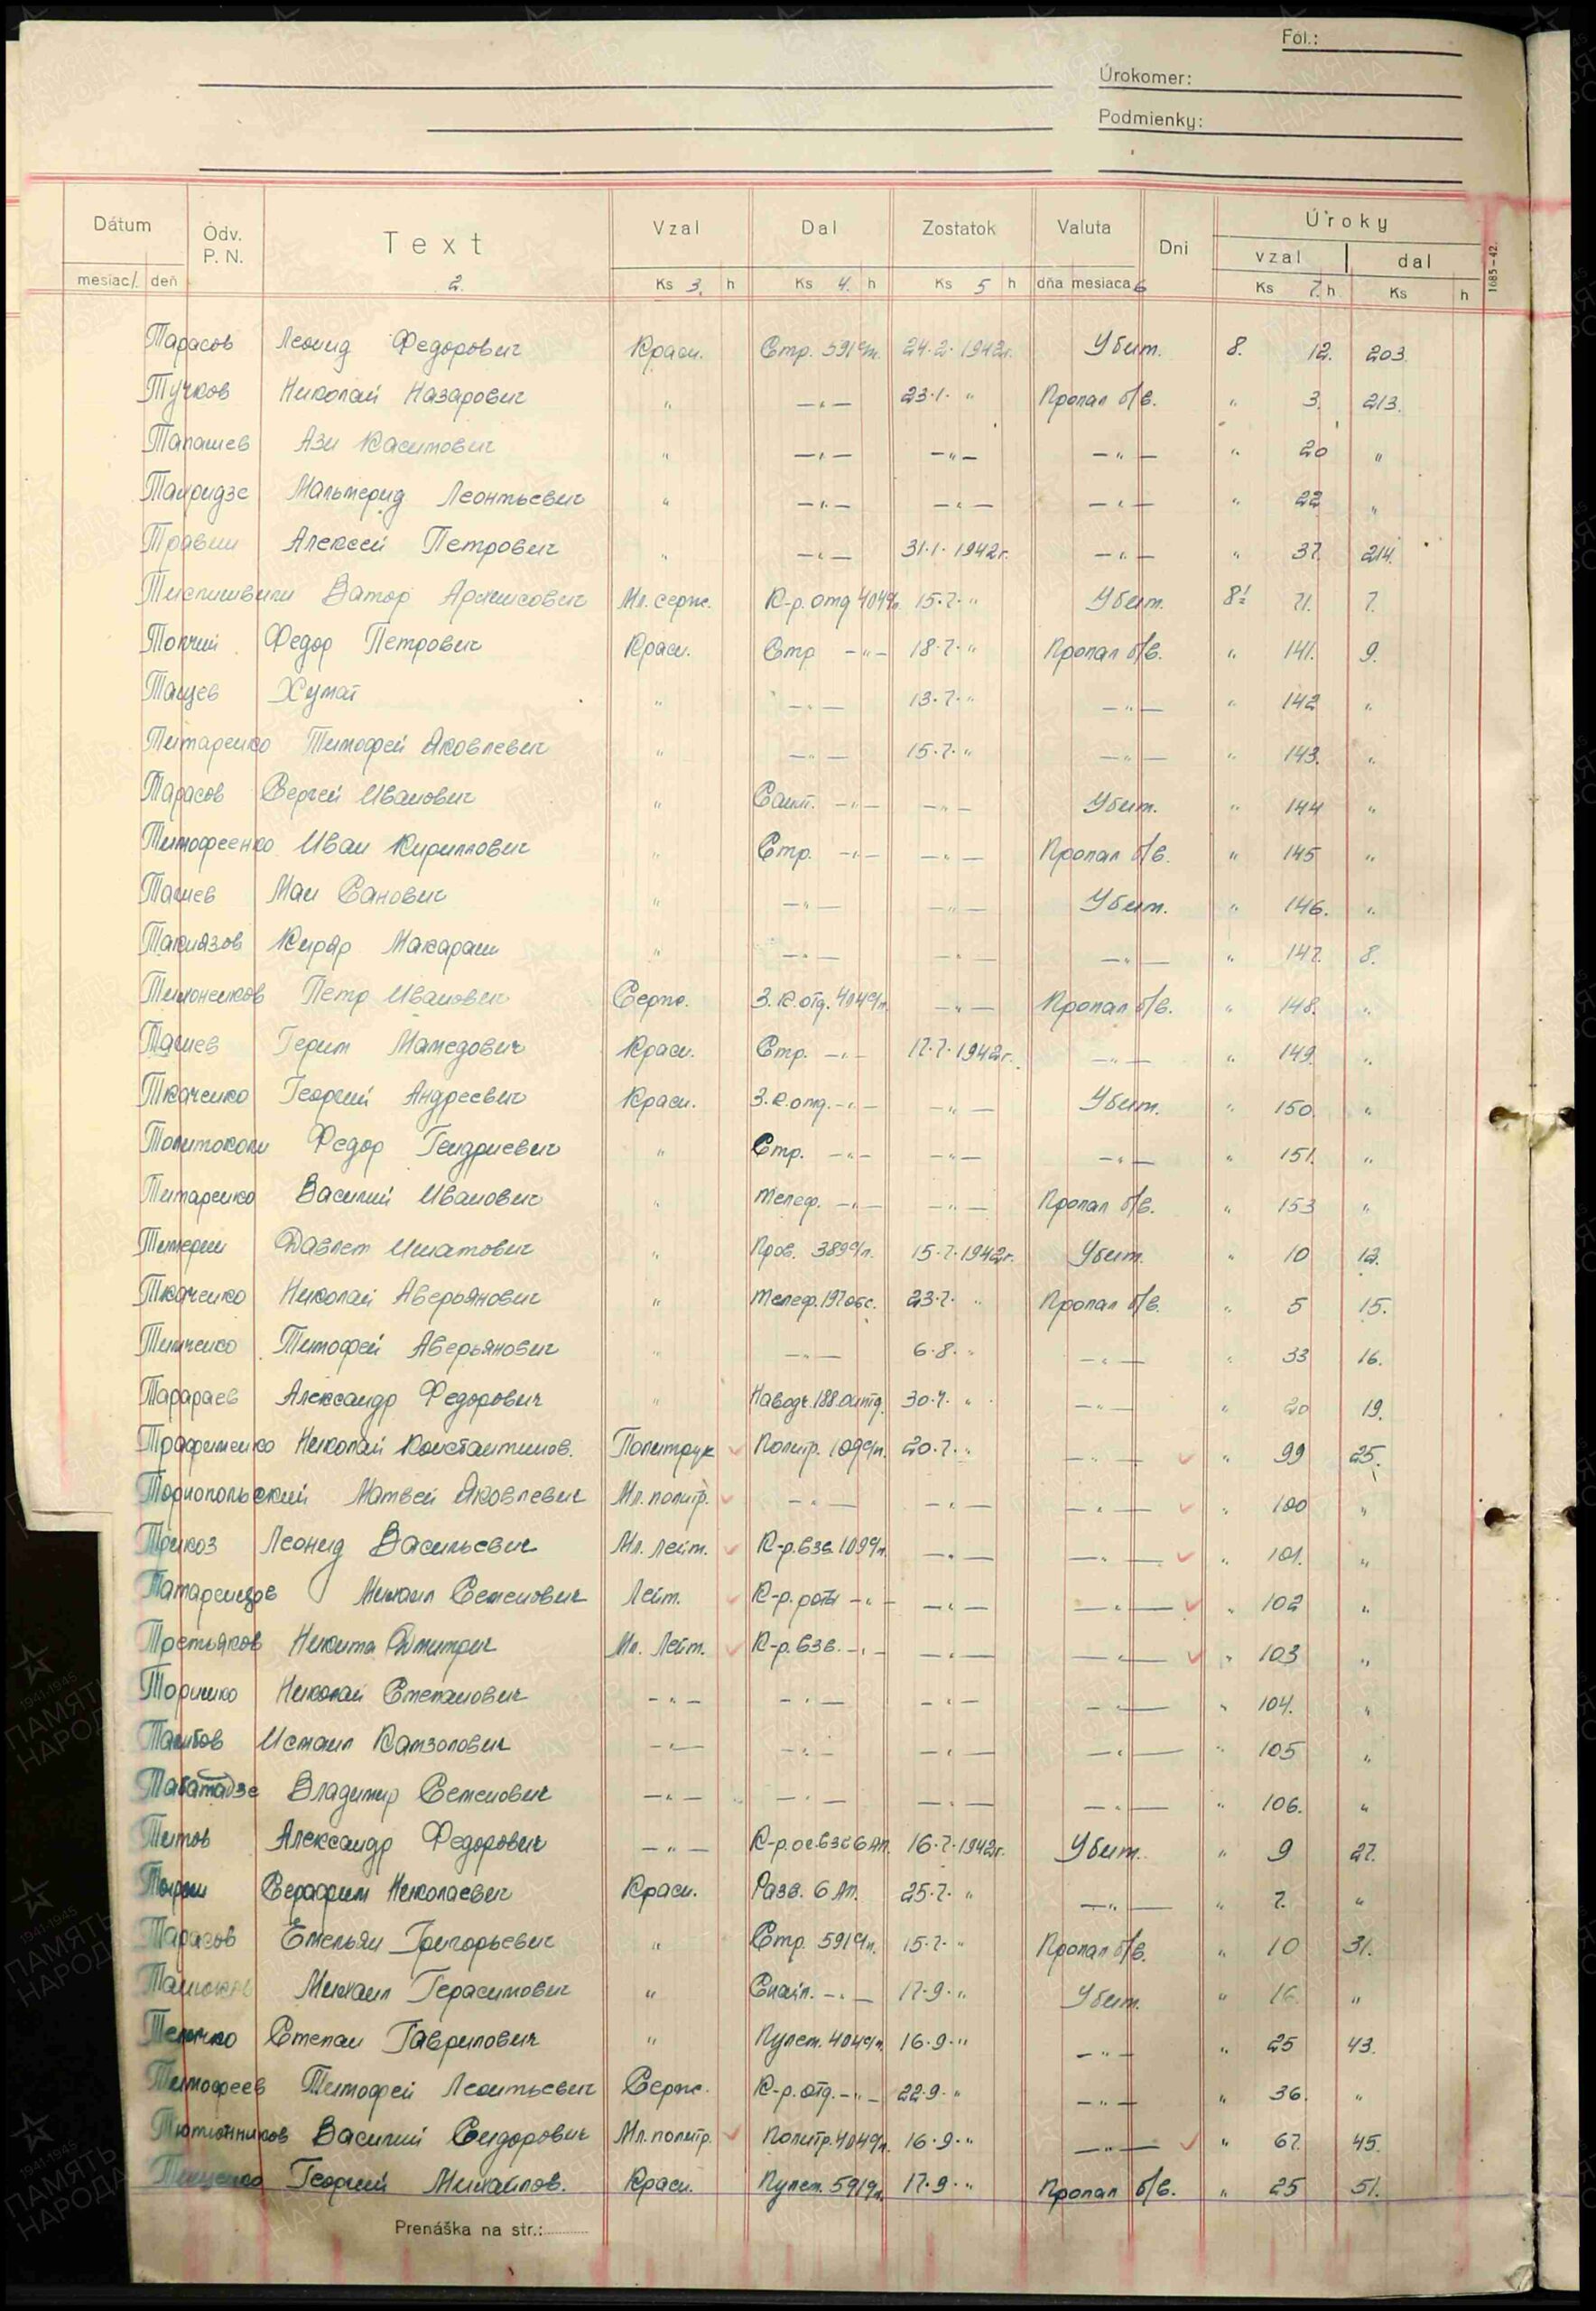 Fol.:
Úrokomer:
Podmienky:
Dátum Odv. P. N. Text Vzal Dal Zostatok Valuta Dni Úroky
vzal dal
mesiac 1. deň 2. Ks 3. h Ks 4. h Ks 5 h dňa mesiaca 6 Ks 7. h Ks h
1685-42.
Тарасов Леонид Федорович Красн. Стр. 591сп. 24.2.1942г. Убит. 8. 12. 203.
Тучков Николай Назарович " —"— 23.1. " Пропал б/в. " 3. 213.
Тапашев Ази Касимович " —"— —"— —"— " 20 "
Тауридзе Леонтьевич " —"— —"— —"— " 22 "
Травин Алексей Петрович " —"— 31.1.1942г. —"— " 37. 214.
Мл. серж. К-р. отд 404сп. 15.7. " Убит. 8! 71. 7.
Топчий Федор Петрович Красн. Стр —"— 18.7. " Пропал б/в. " 141. 9.
Хумат " —"— 13.7. " —"— " 142 "
Титаренко Тимофей Яковлевич " —"— 15.7. " —"— " 143. "
Тарасов Сергей Иванович " —"— —"— Убит. " 144 "
Тимофеенко Иван Кириллович " Стр. —"— —"— Пропал б/в. " 145 "
Ман Санович " —"— —"— Убит. " 146. "
Такиязов " —"— —"— —"— " 147. 8.
Петр Иванович Серж. З.к.отд. 404сп. —"— Пропал б/в. " 148. "
Герим Мамедович Красн. Стр. —"— 17.7.1942г. —"— " 149. "
Ткаченко Георгий Андреевич Красн. З.к.отд. —"— —"— Убит. " 150. "
Федор " Стр. —"— —"— —"— " 151. "
Титаренко Василий Иванович " Телеф. —"— —"— Пропал б/в. " 153 "
Давлет " Пров. 389сп. 15.7.1942г. Убит. " 10 12.
Ткаченко Николай Аверьянович " Телеф. 197обс. 23.7. " Пропал б/в. " 5 15.
Тимченко Тимофей Аверьянович " —"— 6.8. " —"— " 33 16.
Тарараев Александр Федорович " Наводч. 188. 30.7. " —"— " 20 19.
Трафименко Николай Константинов. Политрук Политр. 109сп. 20.7. " —"— " 99 25.
Торнопольский Матвей Яковлевич Мл. политр. —"— —"— —"— " 100 "
Трикоз Леонид Васильевич Мл. лейт. К-р. взв. 109сп. —"— —"— " 101. "
Татаренцов Михаил Семенович Лейт. К-р. роты —"— —"— —"— " 102 "
Третьяков Никита Дмитрич Мл. Лейт. К-р. взв. —"— —"— —"— " 103 "
Торишко Николай Степанович —"— —"— —"— —"— " 104. "
Исмаил Камзолович —"— —"— —"— —"— " 105 "
Табатадзе Владимир Семенович —"— —"— —"— —"— " 106. "
Титов Александр Федорович —"— К-р. 6 Ап. 16.7.1942г. Убит. " 9 27.
Серафим Николаевич Красн. Разв. 6 Ап. 25.7. " —"— " 7. "
Тарасов Емельян Григорьевич " Стр. 591сп. 15.7. " Пропал б/в. " 10 31.
Михаил Герасимович " Снайп. —"— 17.9. " Убит. " 16. "
Степан Гаврилович " Пулем. 404сп. 16.9. " —"— " 25 43.
Тимофеев Тимофей Леонтьевич Серж. К-р. отд. —"— 22.9. " —"— " 36. "
Тютюнников Василий Сидорович Мл. политр. Политр. 404сп. 16.9. " —"— " 67. 45.
Георгий Михайлов. Красн. Пулем. 591сп. 17.9. " Пропал б/в. " 25 51.
Prenáška na str.: